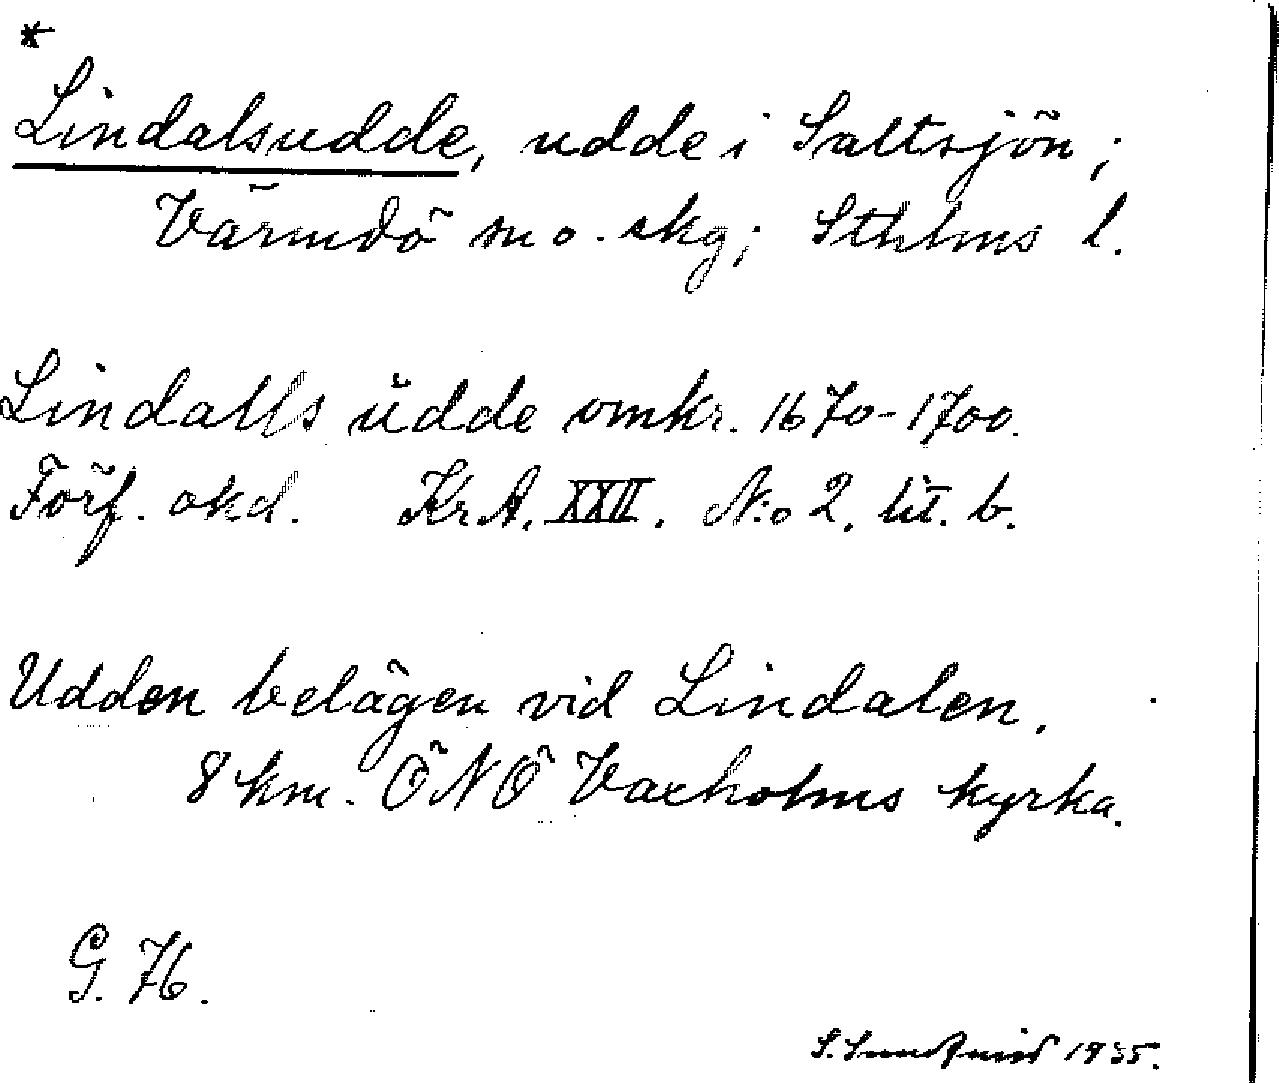 *
Lindalsudde, udde i Saltsjön;
Värmdö m o. skg; Sthlms l.
Lindalls ŭdde omkr. 1670-1700.
Förf. okd. Kr A. XXII. N:o 2. lit. b.
Udden belägen vid Lindalen.
8 km. ÖNÖ Vaxholms kyrka.
G. 76.
S. Sundqvist 1935.